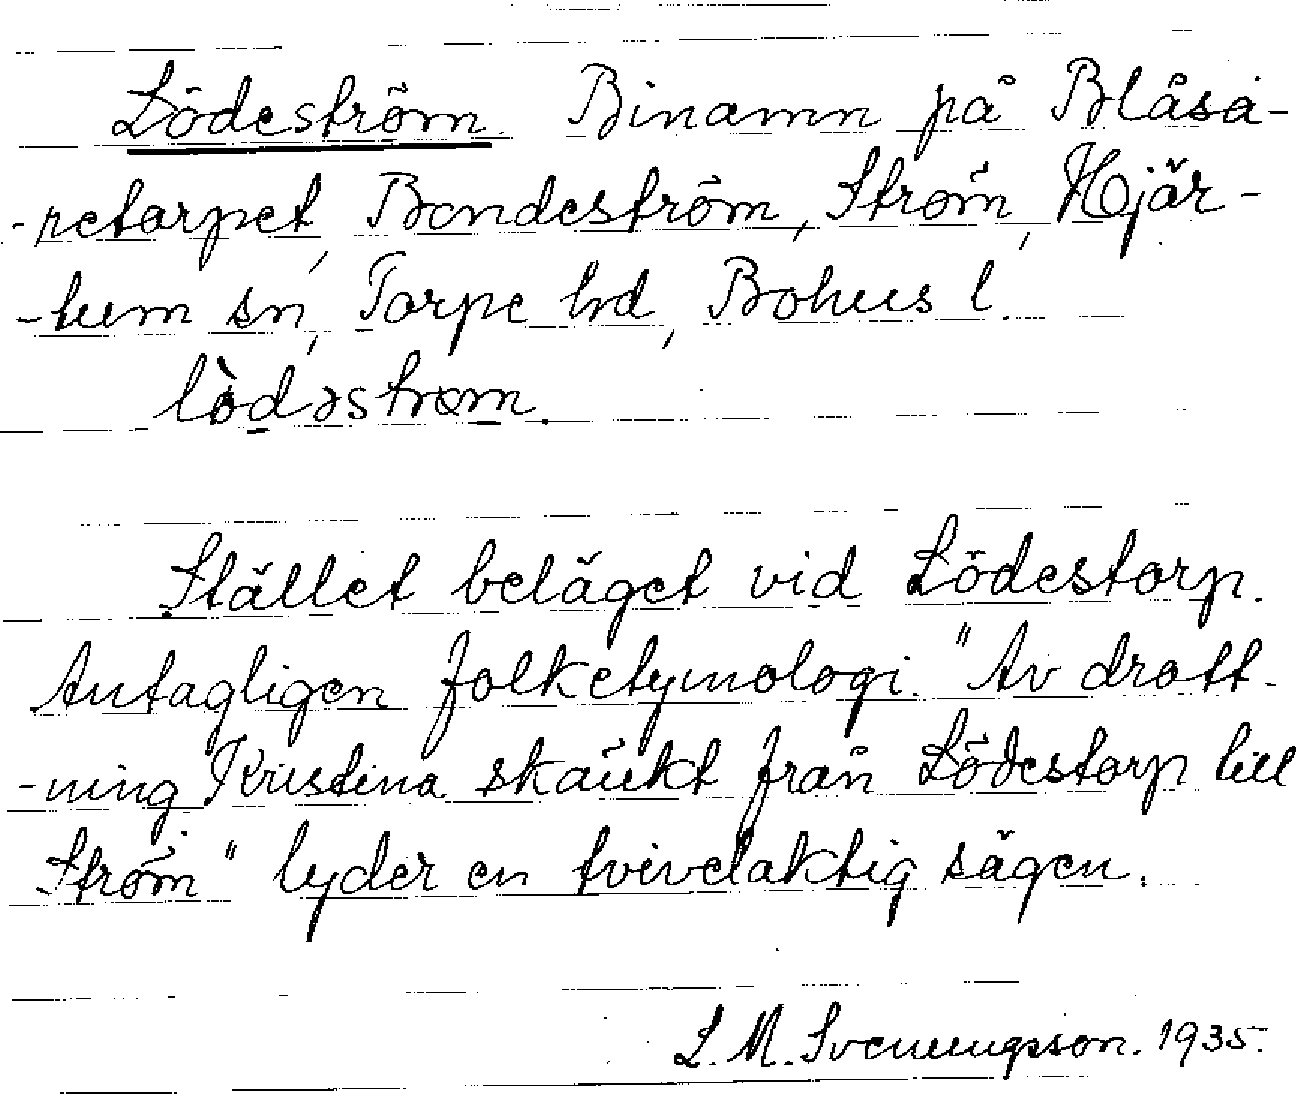 Lödeström Binamn på Blåsa-
-retorpet, Bondeström, Ström, Hjär-
-tum sn, Torpe hd, Bohus l.
lòdəstrøm.
Stället beläget vid Lödestorp.
Antagligen folketymologi. "Av drott-
-ning Kristina skänkt från Lödestorp till
Ström" lyder en tvivelaktig sägen.
L. M. Svenungsson. 1935.